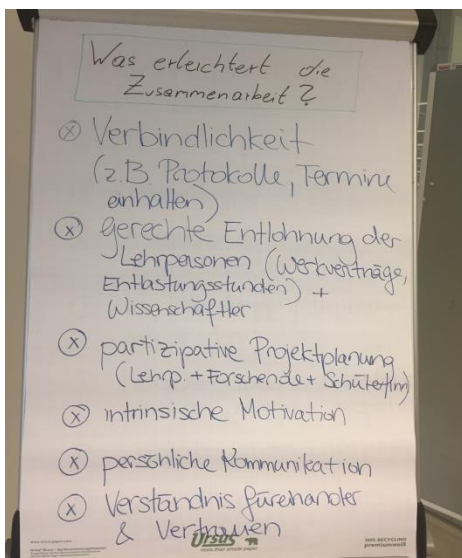 Was erleichtert die
Zusammenarbeit?
ⓧ Verbindlichkeit
(z.B. Protokolle, Termine
einhalten)
ⓧ gerechte Entlohnung der
Lehrpersonen (Werkverträge,
Entlastungsstunden) +
Wissenschaftler
ⓧ partizipative Projektplanung
(Lehrp. + Forschende + SchülerInn)
ⓧ intrinsische Motivation
ⓧ persönliche Kommunikation
ⓧ Verständnis füreinander
& Vertrauen
Ursus
more than simple paper
www.ursus-paper.com
100% RECYCLING
premiumweiß